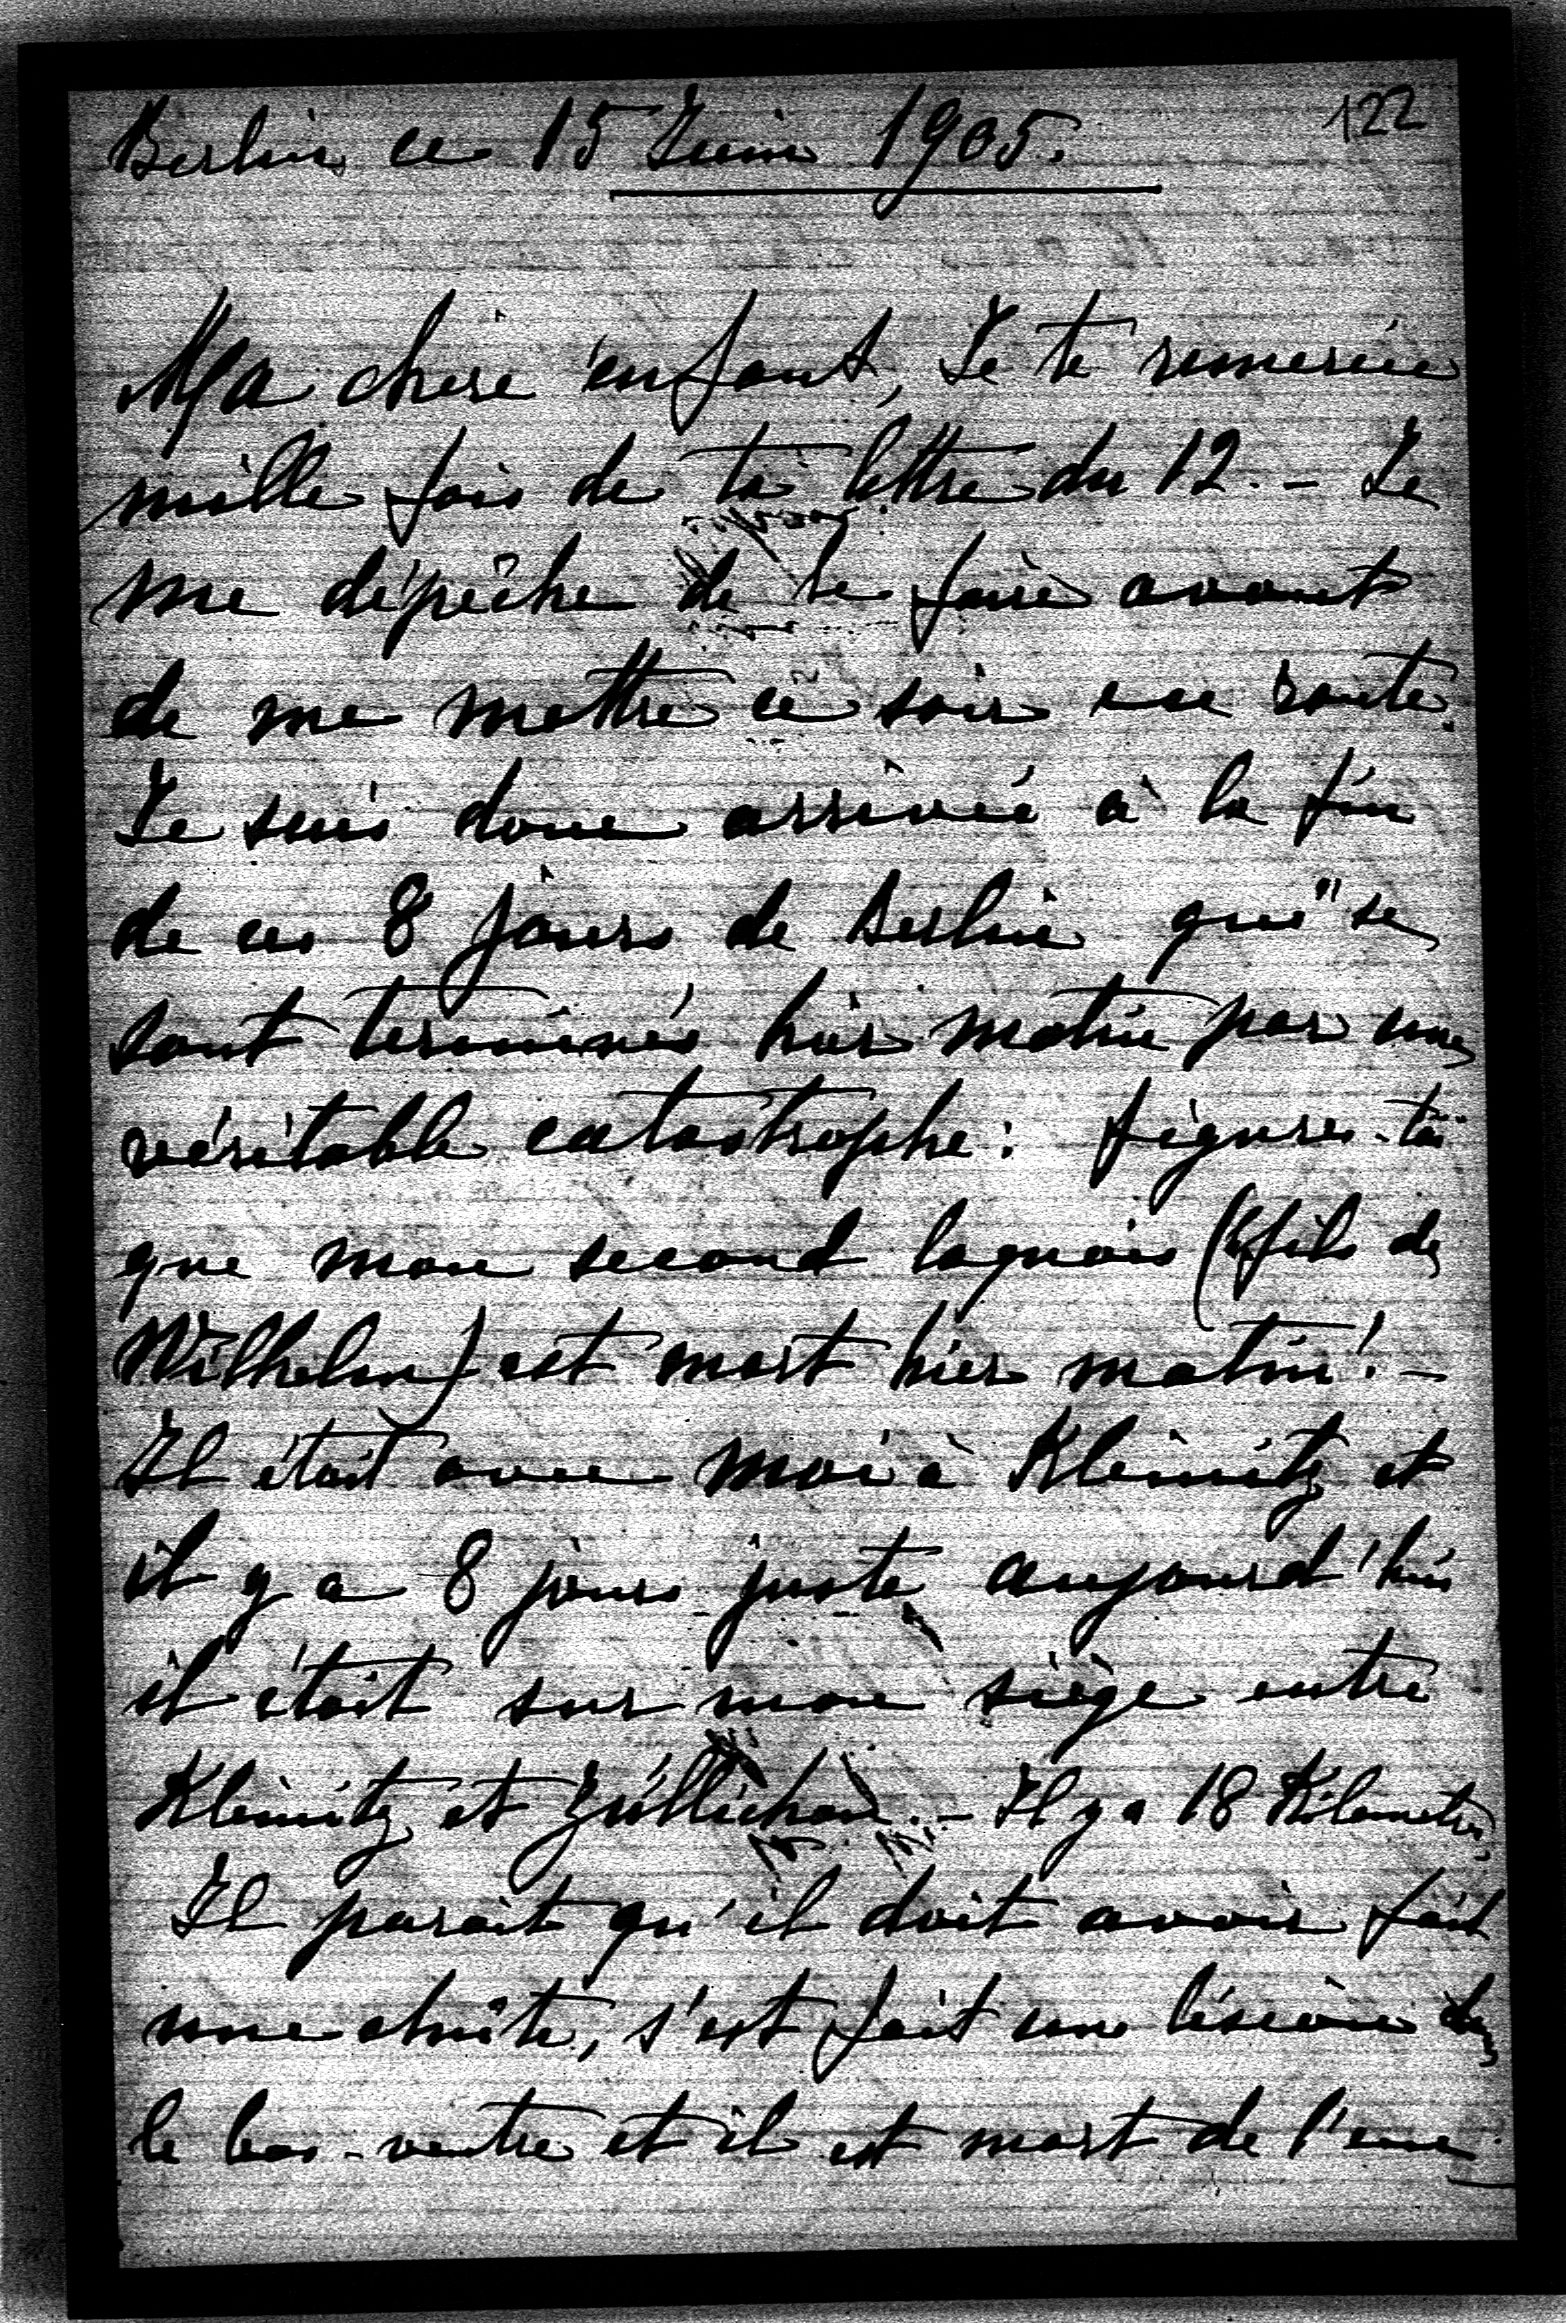 122
Berlin ce 15 Juin 1905.
Ma chère enfant, Je te remercie
mille fois de ta lettre du 12. – Je
me dépêche de le faire avant
de me mettre ce soir en route.
Je suis donc arrivée à la fin
de ces 8 jours de Berlin qui se
sont terminés hier matin par une
véritable catastrophe: figures-toi
que mon second laquais (le fils de
Wilhelm) est mort hier matin! –
Il était avec moi à Kleinitz et
il y a 8 jours juste aujourd'hui
il était sur mon siège entre
Kleinitz et Züllichau. – Il y a 18 Kilometres
Il parait qu'il doit avoir fait
une chûte, s'est fait une lésion dans
le bas-ventre et il est mort de l'une